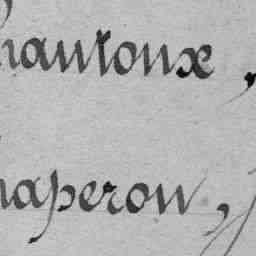 hautoux,
haperon,